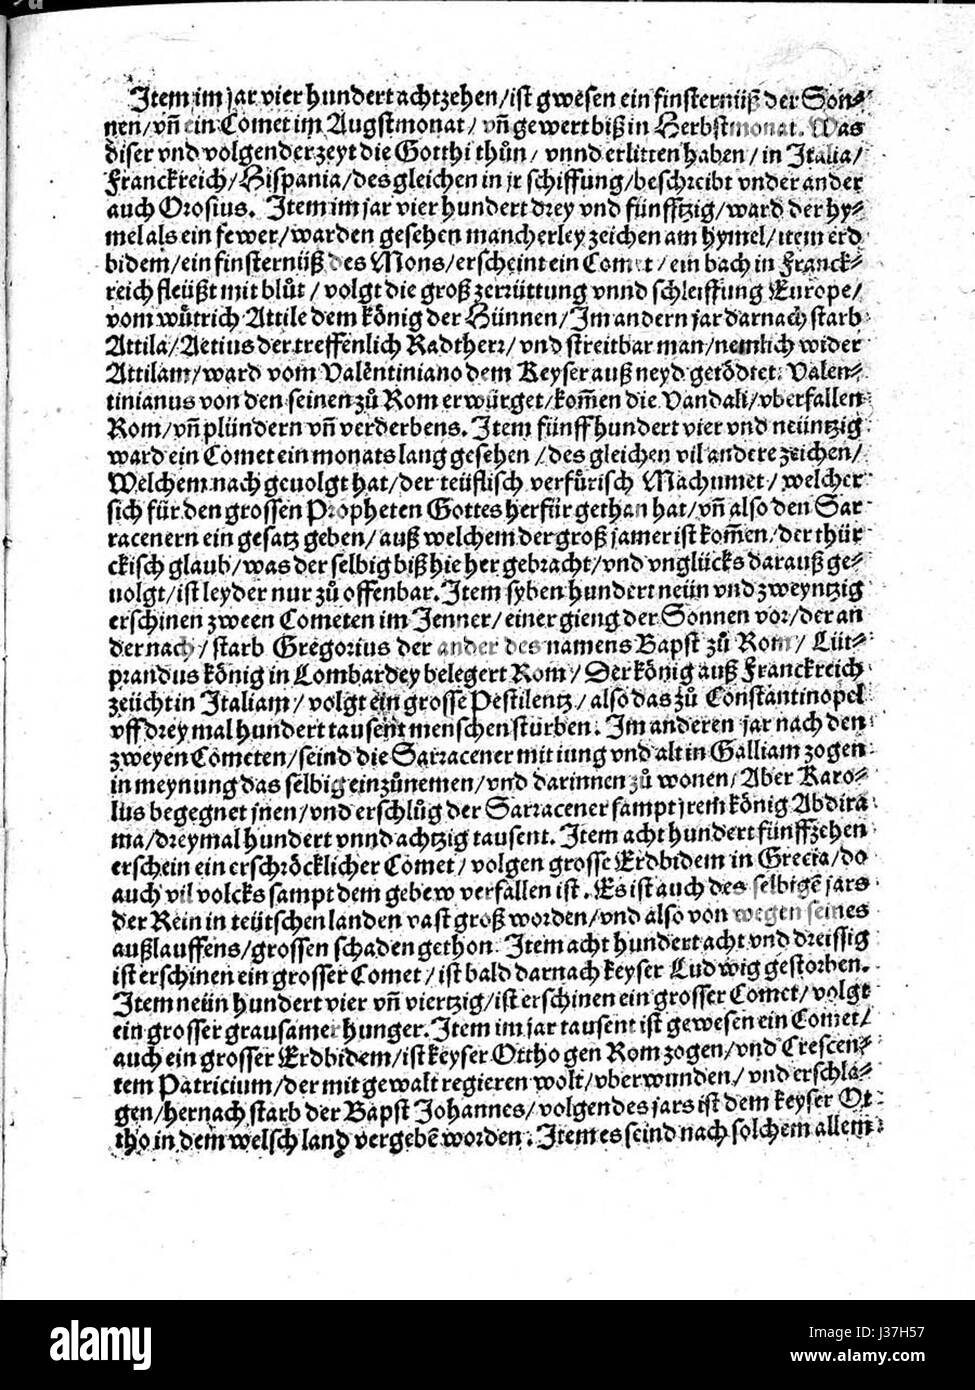 Item im jar vier hundert achtzehen/ist gwesen ein finsternüß der Son⸗
nen/vñ ein Comet im Augstmonat/ vñ gewert biß in Herbstmonat. Was
diser vnd volgender zeyt die Gotthi thůn/ vnnd erlitten haben/in Italia/
Franckreich/Hispania/des gleichen in jr schiffung/beschreibt vnder ander
auch Orosius. Item im jar vier hundert drey vnd fünfftzig/ward der hy⸗
mel als ein fewer/warden gesehen mancherley zeichen am hymel/item erd
bidem/ein finsternüß des Mons/erscheint ein Comet/ein bach in Franck⸗
reich fleüßt mit blůt/volgt die groß zerrüttung vnnd schleiffung Europe/
vom wůtrich Attile dem künig der Hünnen/Im andern jar darnach starb
Attila/Aetius der treffenlich Radtherr/vnd streitbar man/nemlich wider
Attilam/ward vom Valentiniano dem Keyser auß neyd getödtet: Valen⸗
tinianus von den seinen zů Rom erwürget/kom̃en die Vandali/vberfallen
Rom/vñ plündern vñ verderbens. Item fünffhundert vier vnd neüntzig
ward ein Comet ein monats lang gesehen/des gleichen vil andere zeichen/
Welchem nach geuolgt hat/der teüflisch verfůrisch Machumet/welcher
sich für den grossen Propheten Gottes herfür gethan hat/vñ also den Sar
racenern ein gesatz geben/auß welchem der groß jamer ist kom̃en/der thür
ckisch glaub/was der selbig biß hie her gebracht/vnd vnglücks darauß ge⸗
uolgt/ist leyder nur zů offenbar. Item syben hundert neün vnd zweyntzig
erschinen zween Cometen im Jenner/einer gieng der Sonnen vor/der an
der nach/starb Gregorius der ander des namens Bapst zů Rom/ Lüt⸗
prandus künig in Lombardey belegert Rom/Der künig auß Franckreich
zeücht in Italiam/volgt ein grosse Pestilentz/also das zů Constantinopel
vff drey mal hundert tausent menschen stürben. Im anderen jar nach den
zweyen Cometen/seind die Sarracener mit iung vnd alt in Galliam zogen
in meynung das selbig einzůnemen/vnd darinnen zů wonen/Aber Karo⸗
lus begegnet jnen/vnd erschlůg der Sarracener sampt jrem künig Abdira
ma/dreymal hundert vnnd achtzig tausent. Item acht hundert fünffzehen
erschein ein erschröcklicher Comet/volgen grosse Erdbidem in Grecia/do
auch vil volcks sampt dem gebew verfallen ist. Es ist auch des selbigẽ jars
der Rein in teütschen landen vast groß worden/vnd also von wegen seines
außlauffens/grossen schaden gethon. Item acht hundert acht vnd dreissig
ist erschinen ein grosser Comet/ist bald darnach keyser Ludwig gestorben.
Item neün hundert vier vñ viertzig/ist erschinen ein grosser Comet/volgt
ein grosser grausamer hunger. Item im jar tausent ist gewesen ein Comet/
auch ein grosser Erdbidem/ist keyser Ottho gen Rom zogen/vnd Crescen⸗
tem Patricium/der mit gewalt regieren wolt/vberwunden/vnd erschla⸗
gen/hernach starb der Bapst Johannes/volgendes jars ist dem keyser Ot
tho in dem welsch land vergebẽ worden. Item es seind nach solchem allem
alamy stock photo
J37H57
www.alamy.com